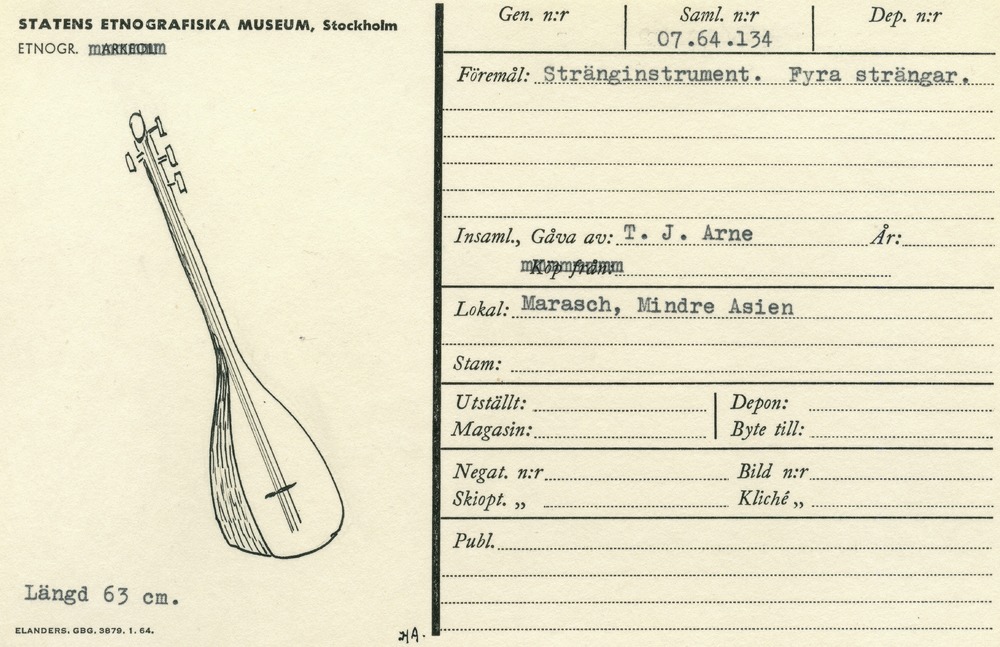 STATENS ETNOGRAFISKA MUSEUM, Stockholm
ETNOGR.
Längd 63 cm.
ELANDERS. GBG. 3879. 1. 64.
HA.
Gen. n:r Saml. n:r Dep. n:r
07.64.134
Föremål: Stränginstrument. Fyra strängar.
Insaml., Gåva av: T. J. Arne År:
Köp från:
Lokal: Marasch, Mindre Asien
Stam:
Utställt: Depon:
Magasin: Byte till:
Negat. n:r Bild n:r
Skiopt. „ Kliché „
Publ.